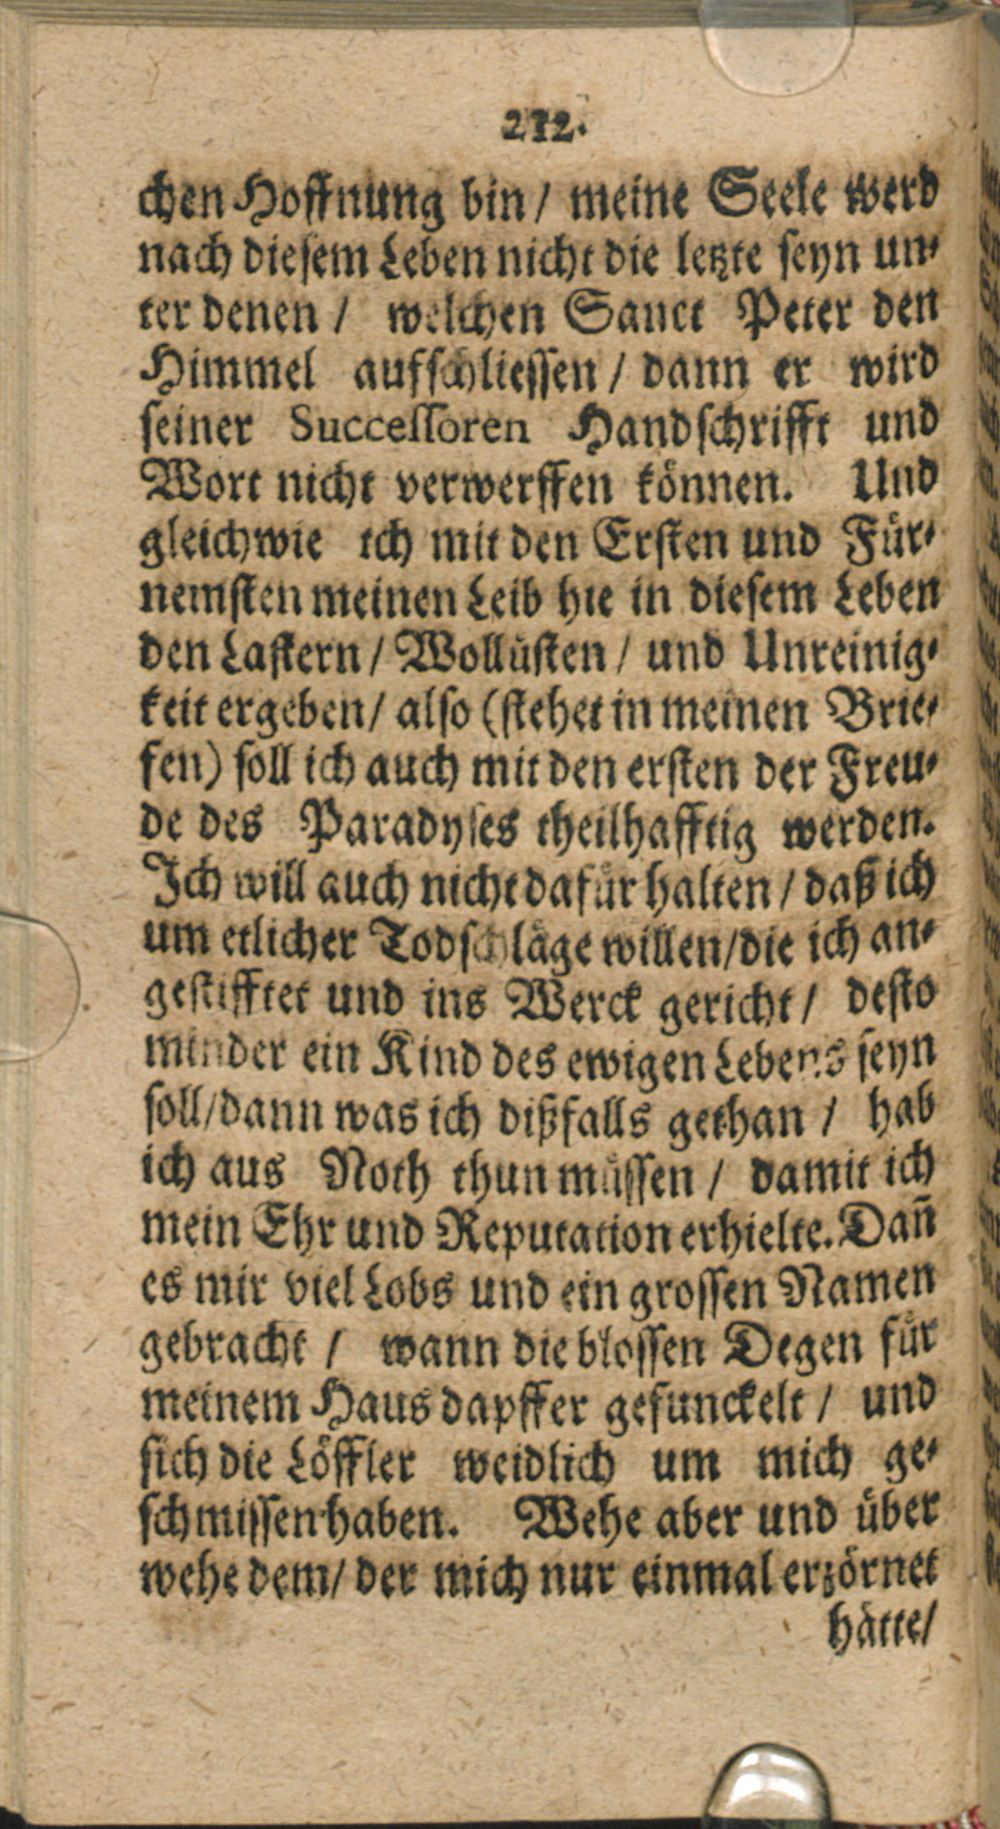 272.
chen Hoffnung bin / meine Seele werd
nach diesem Leben nicht die letzte seyn un-
ter denen / welchen Sanct Peter den
Himmel aufschliessen / dann er wird
seiner Successoren Handschrifft und
Wort nicht verwerffen können. Und
gleichwie ich mit den Ersten und Für-
nemsten meinen Leib hie in diesem Leben
den Lastern / Wollüsten / und Unreinig-
keit ergeben / also (stehet in meinen Brie-
fen) soll ich auch mit den ersten der Freu-
de des Paradyses theilhafftig werden.
Ich will auch nicht dafür halten / daß ich
um etlicher Todschläge willen / die ich an-
gestifftet und ins Werck gericht / desto
minder ein Kind des ewigen Lebens seyn
soll / dann was ich dißfalls gethan / hab
ich aus Noth thun müssen / damit ich
mein Ehr und Reputation erhielte. Dañ
es mir viel Lobs und ein grossen Namen
gebracht / wann die blossen Degen für
meinem Haus dapffer gefunckelt / und
sich die Löffler weidlich um mich ge-
schmissen haben. Wehe aber und über
wehe dem / der mich nur einmal erzörnet
hätte /